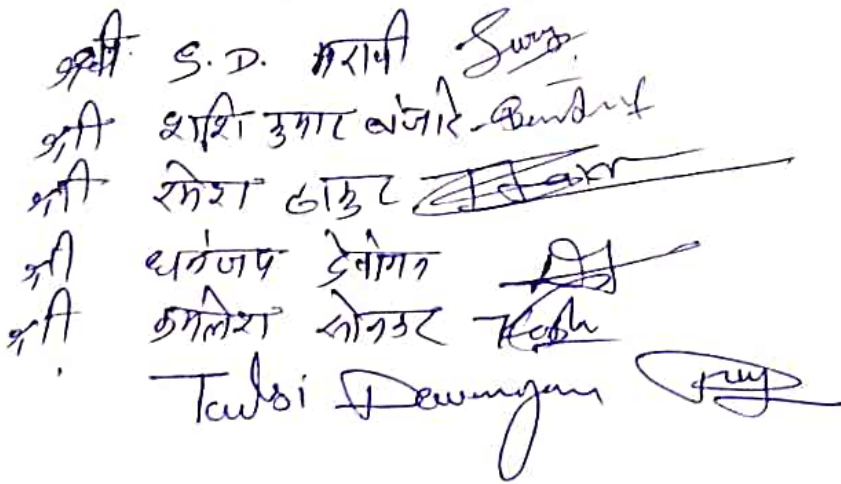 श्री S.D. मरावी
श्री शशि कुमार बंजारे
श्री रमेश ठाकुर
श्री धनंजय देवांगन
श्री कमलेश सोनकर
Tulsi Dewangan